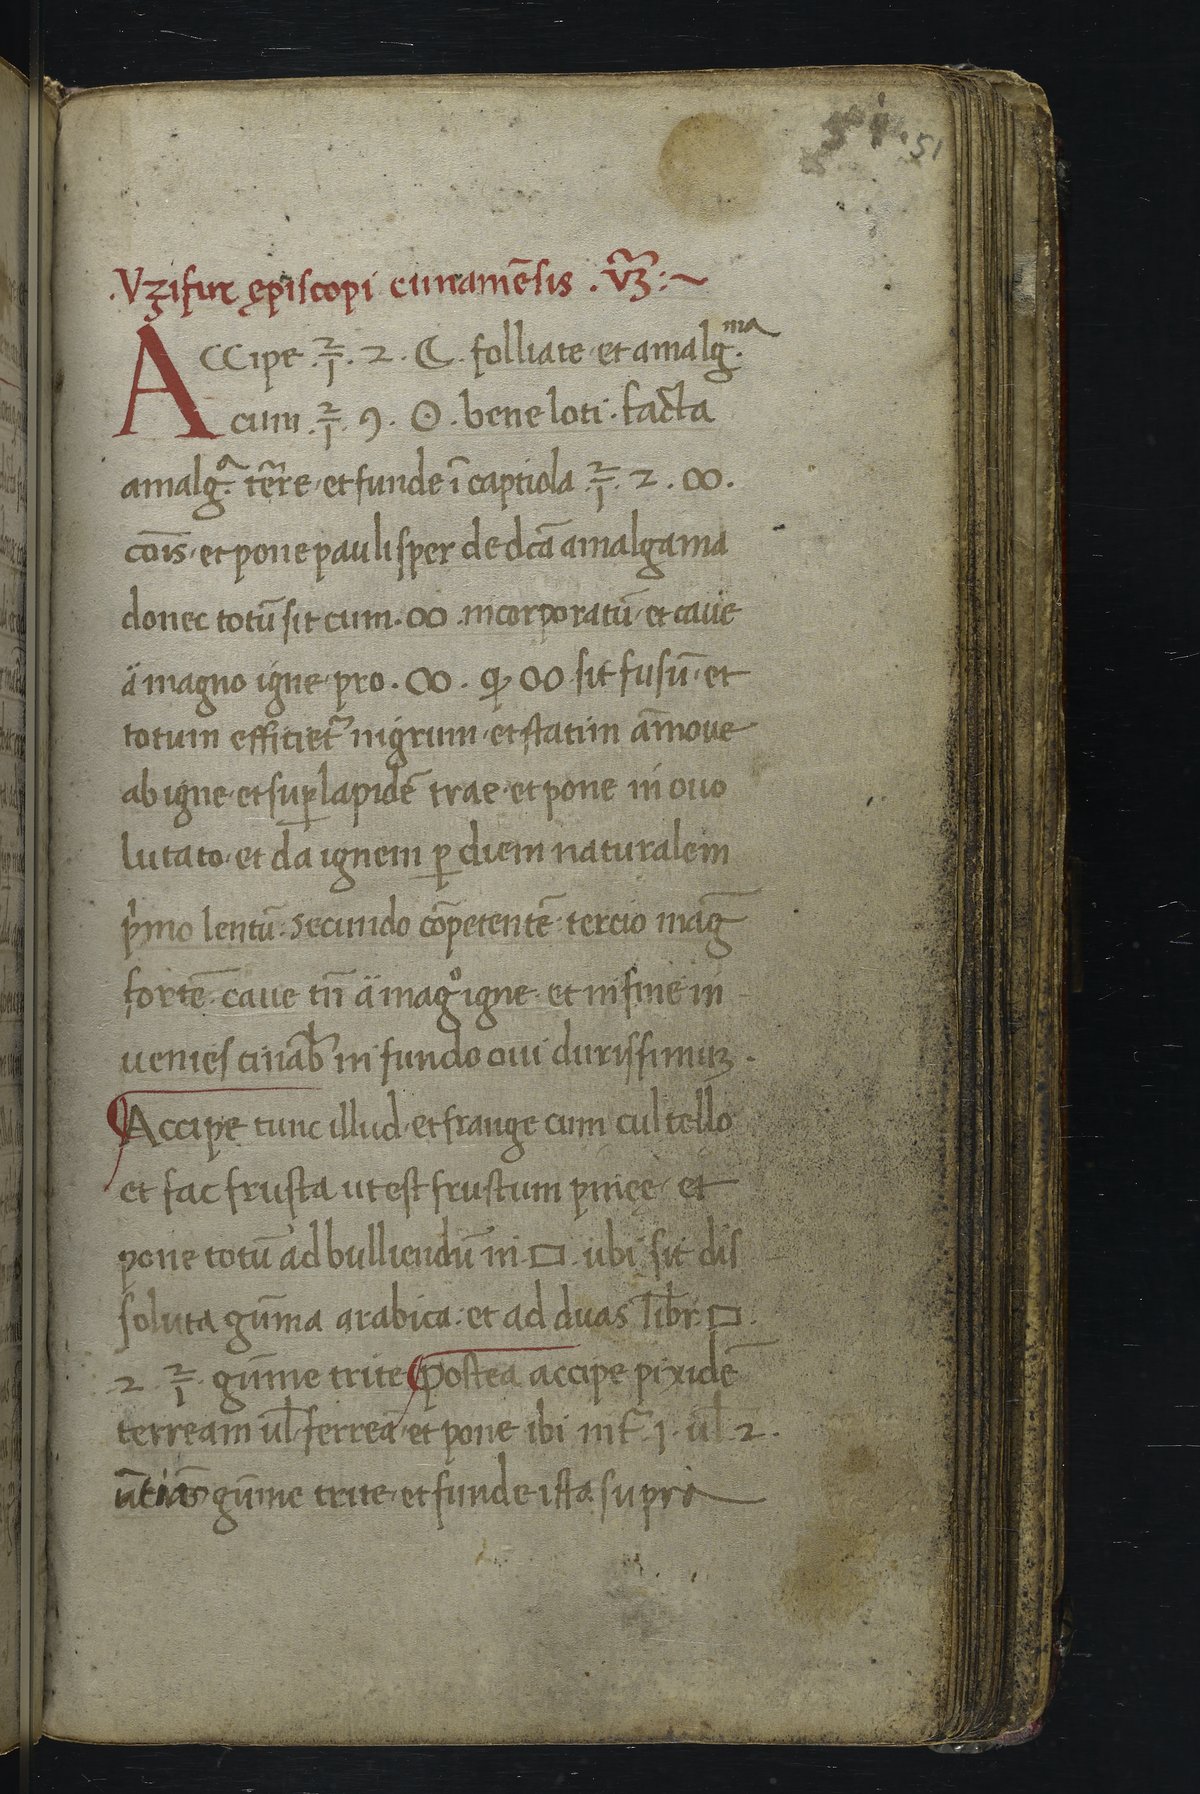 51
.Vzifur ępiscopi cunamēsis . vz̃ :~
Accipe . ℥ . 2 . ☾ . folliate · et amalg.ᵐᵃ
cum . ℥ . 9 . ☉ . bene loti · facta
amalg.ᵃ tēre · et funde ī captiola . ℥ . 2 . ∞ .
cōis · et pone paulisper de dcā amalgama
donec totū sit cum . ∞ . incorporatū · et cave
a magno igne · pro . ∞ . ꝙ ∞ sit fusū · et
totum efficiet̃ nigrum · et statim amove
ab igne · et suꝑ lapidē trae · et pone in ovo
lutato · et da ignem ꝑ diem naturalem
pͥmo lentū · secundo cōpetentē · tercio mag̃
fortē · cave tn̄ a mag̊ igne · et in fine in
venies cinab̃ in fundo ovi durissimuʒ .
¶ Accipe tunc illud · et frange cum cultello
et fac frusta ut est frustum pinęę · et
pone totū ad bulliendū in . □ . ubi sit dis
soluta gūma arabica · et ad duas libr̄ . □ .
. 2 . ℥ . gūme trite ¶ Postea accipe pixidē
terream ul̄ ferreā · et pone ibi int̃ . 1 . ul̄ . 2 .
ūtias gūme trite · et funde ista supra